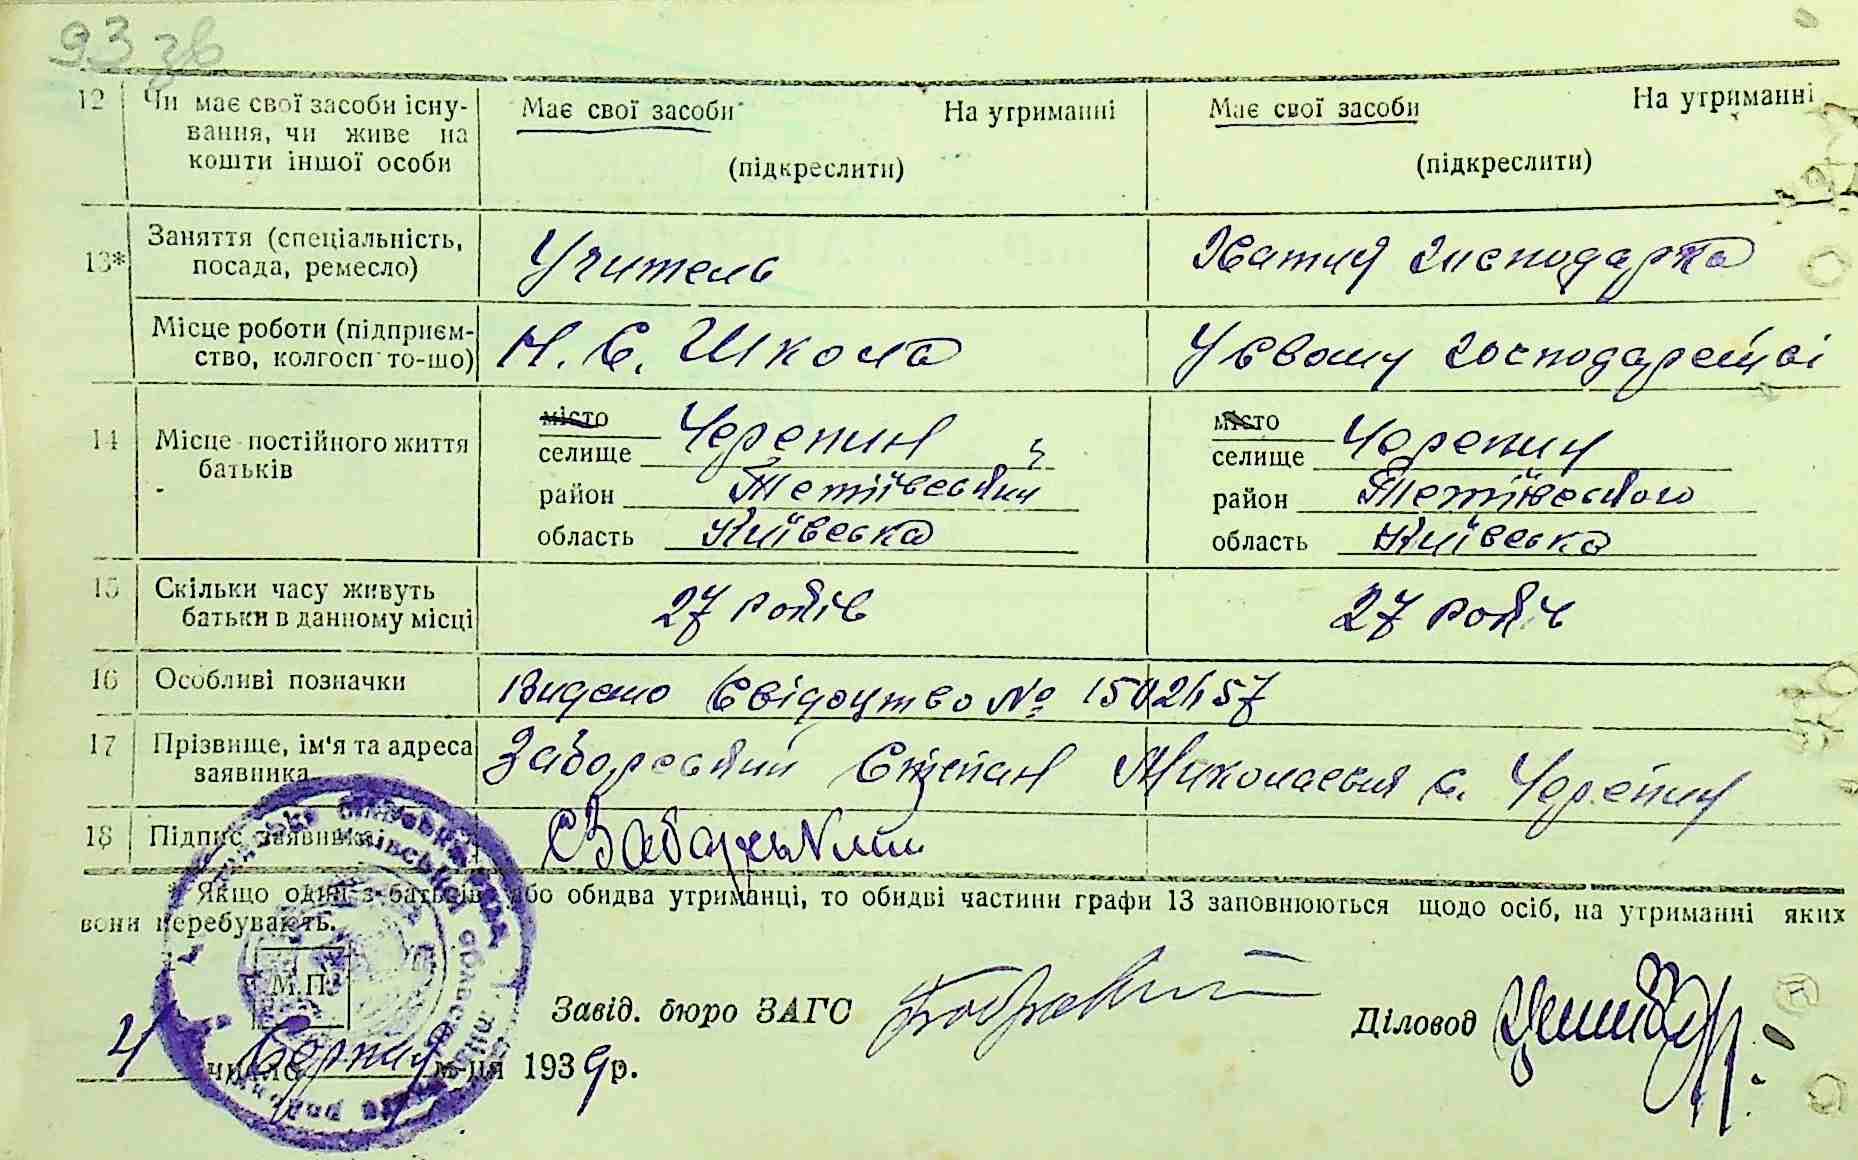 93 зв
12 Чи має свої засоби існу-
вання, чи живе на
кошти іншої особи
Має свої засоби На утриманні
(підкреслити)
Має свої засоби На утриманні
(підкреслити)
13* Заняття (спеціальність,
посада, ремесло)
Учитель
Хатня господарка
Місце роботи (підприєм-
ство, колгосп то-що)
Н. С. Школа
У свому господарстві
14 Місце постійного життя
батьків
місто
селище Черепин
район Тетіївський
область Київська
місто
селище Черепин
район Тетіївського
область Київська
15 Скільки часу живуть
батьки в данному місці
27 років
27 років
16 Особливі позначки
Видано Свідоцтво № 1502457
17 Прізвище, ім'я та адреса
заявника
Заборський Степан Миколаєвич с. Черепин
18 Підпис заявника
* Якщо один з батьків або обидва утриманці, то обидві частини графи 13 заповнюються щодо осіб, на утриманні яких
вони перебувають.
М.П.
Завід. бюро ЗАГС
Діловод
4 число Серпня м-ця 1939 р.